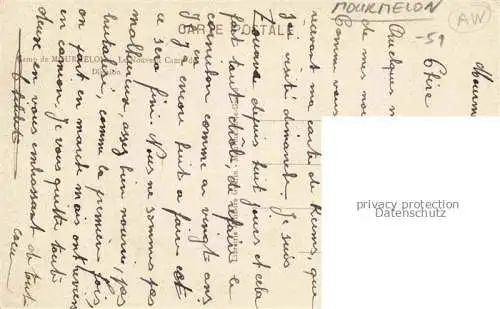 MOURMELON
AW
-51
CARTE POSTALE
Camp de MOURMELON — Le Nouveau Camp
Division
Mourm
Chère
Quelques m
de mes nou
Comme vous
recevant ma carte de Reims, que
j'ai visité dimanche. Je suis
depuis huit jours et cela
fait tout drôle, de refaire le
comme au vingt ans
J'y encore huit a faire et
ce sera fini. Nous ne sommes pas
malheureux, assez bien nourris, pas
comme la première fois,
on part en marche mais ont revient
en camion. Je vous quitte toute
en vous embrassant de tout
cœur
privacy protection
www.ansichtskartenversand.com